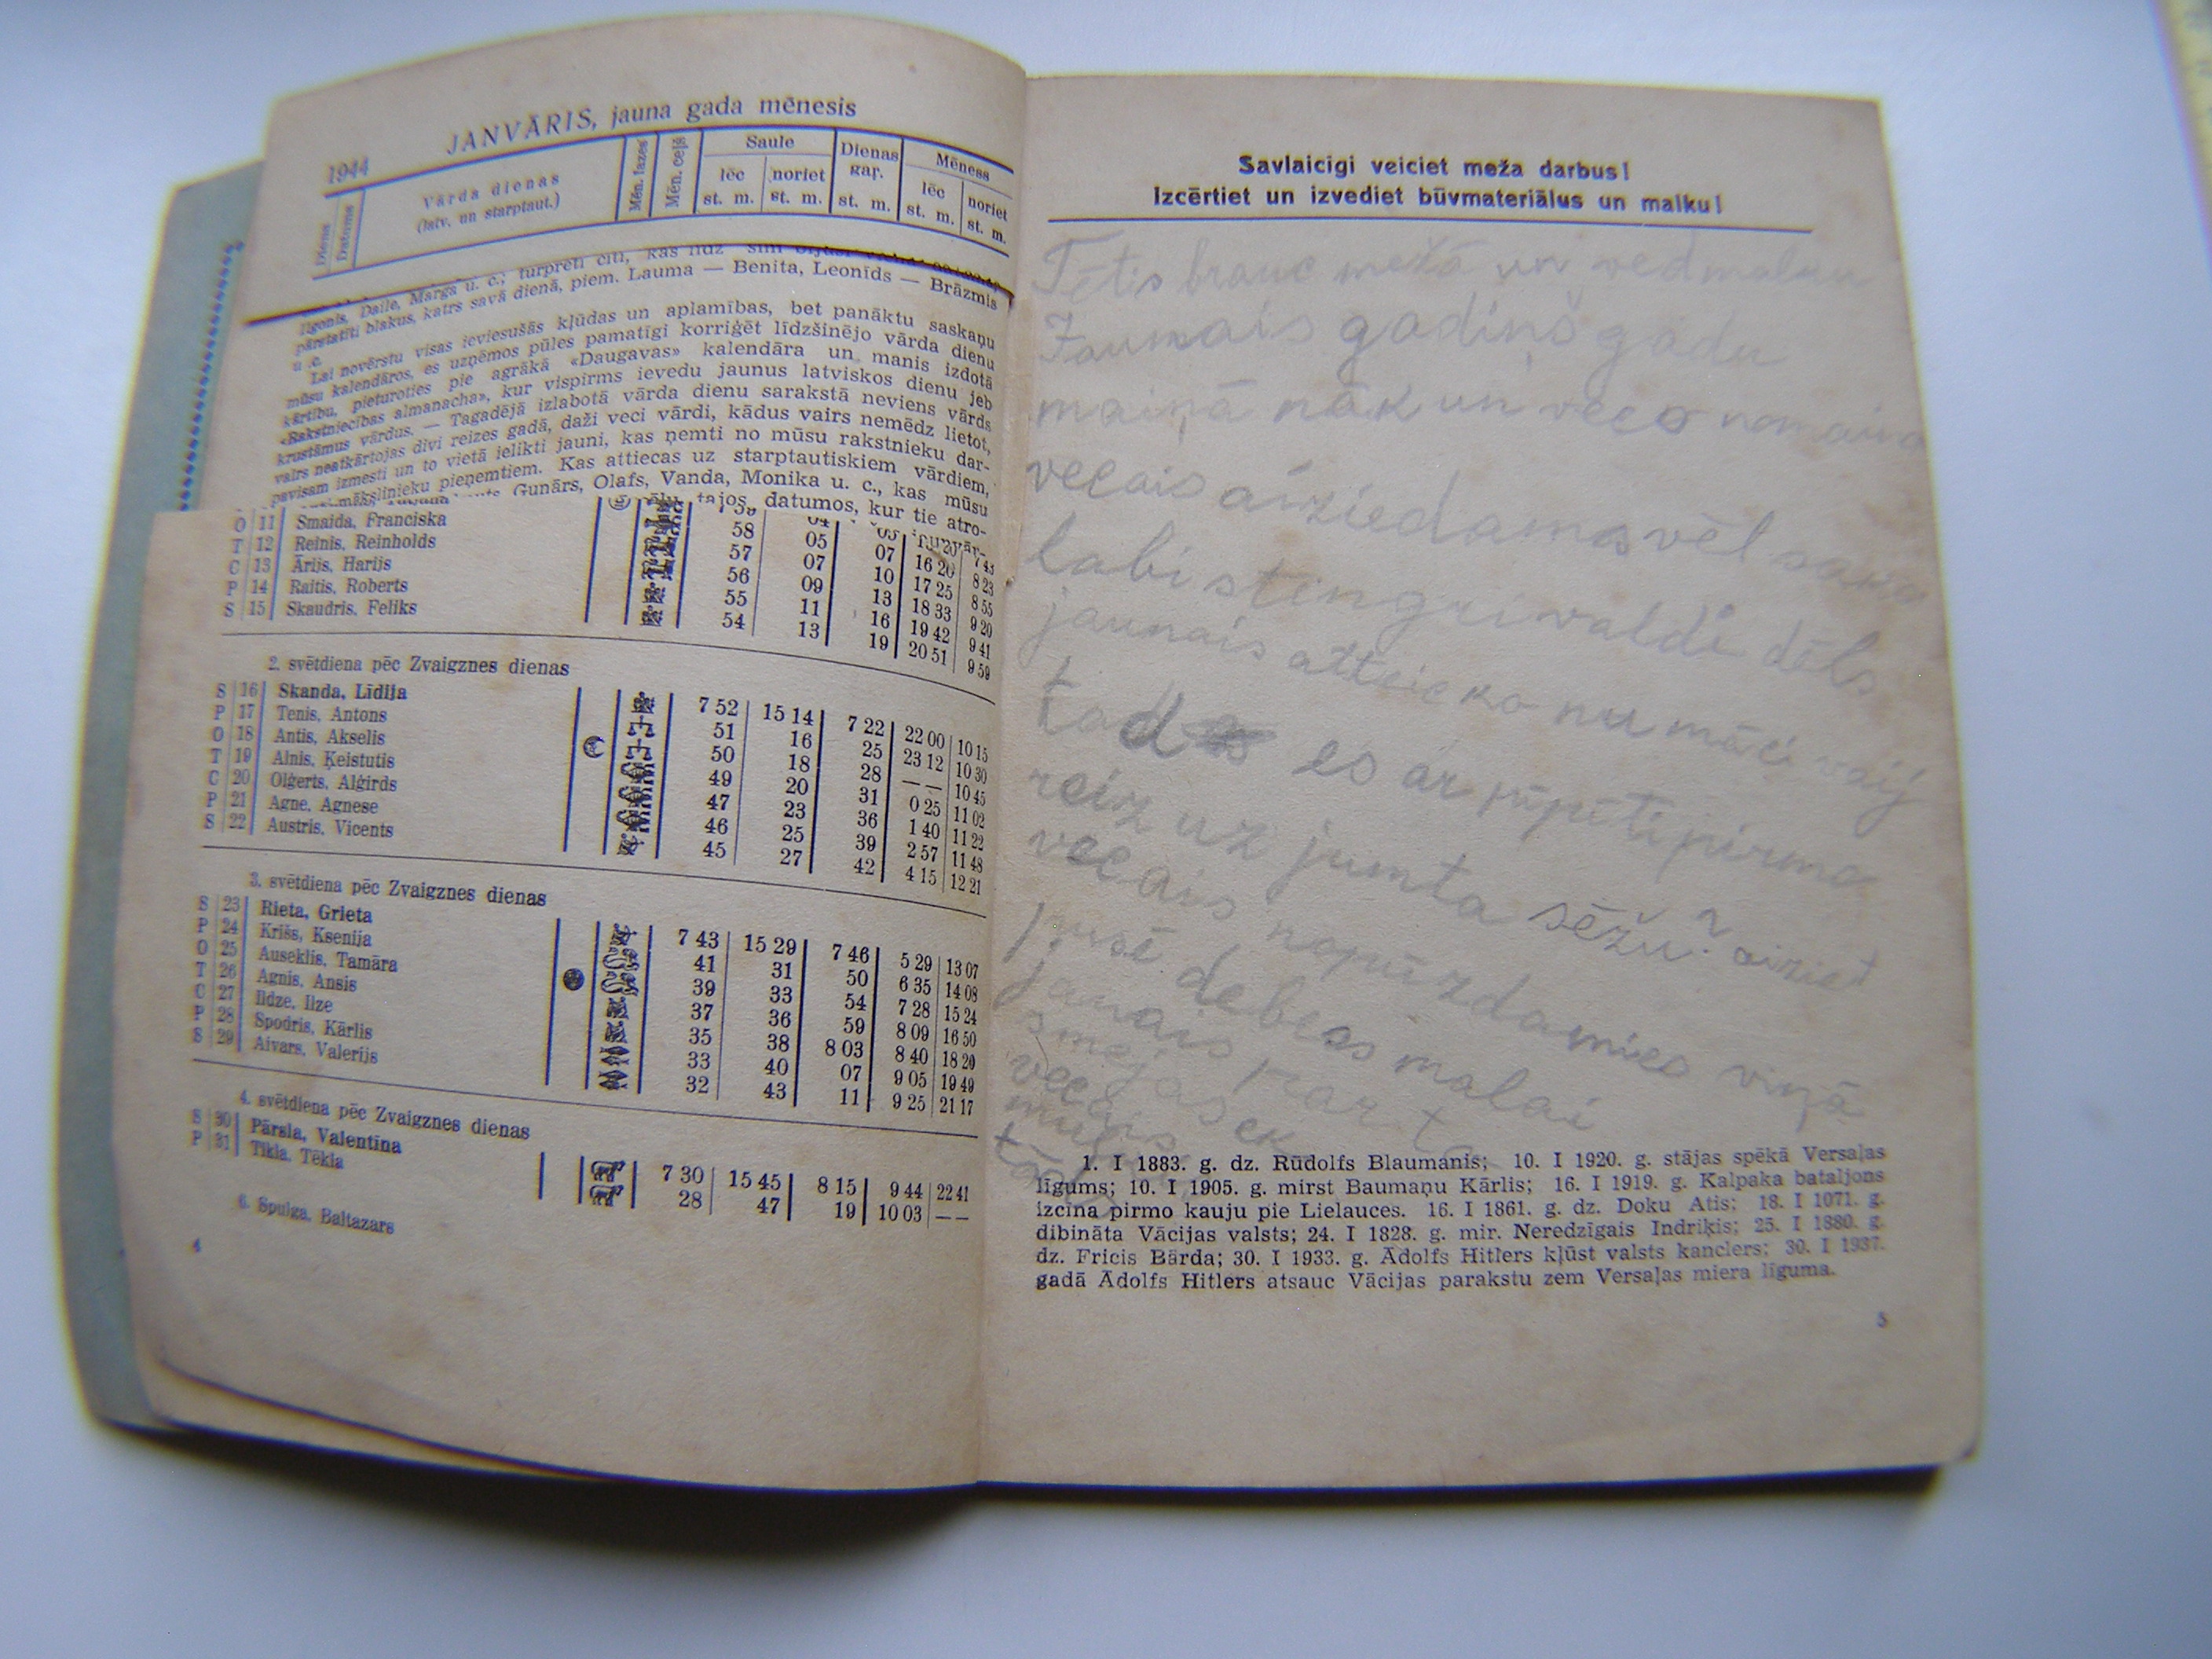 1944
JANVĀRIS, jauna gada mēnesis
Diena
Datums
Vārda dienas
(latv. un starptaut.)
Mēn. fazes
Mēn. ceļš
Saule
lēc
noriet
st. m.
st. m.
Dienas
gaŗ.
st. m.
Mēness
lēc
noriet
st. m.
st. m.
Ilgonis, Daile, Marga u. c.; turpreti citi, kas līdz šim
pārstatīti blakus, katrs savā dienā, piem. Lauma — Benita, Leonīds — Brāzmis
u .c.
Lai novērstu visas ieviesušās kļūdas un aplamības, bet panāktu saskaņu
mūsu kalendāros, es uzņēmos pūles pamatīgi korriģēt līdzšinējo vārda dienu
kārtību, pieturoties pie agrākā «Daugavas» kalendāra un manis izdotā
«Rakstniecības almanacha», kur vispirms ievedu jaunus latviskos dienu jeb
krustāmus vārdus. — Tagadējā izlabotā vārda dienu sarakstā neviens vārds
vairs neatkārtojas divi reizes gadā, daži veci vārdi, kādus vairs nemēdz lietot,
pavisam izmesti un to vietā ielikti jauni, kas ņemti no mūsu rakstnieku dar-
mākslinieku pieņemtiem. Kas attiecas uz starptautiskiem vārdiem,
Gunārs, Olafs, Vanda, Monika u. c., kas mūsu
tajos datumos, kur tie atro-
O 11 Smaida, Franciska 58 05 07 16 20 8 23
T 12 Reinis, Reinholds 57 07 10 17 25 8 55
C 13 Ārijs, Harijs 56 09 13 18 33 9 20
P 14 Raitis, Roberts 55 11 16 19 42 9 41
S 15 Skaudris, Feliks 54 13 19 20 51 9 59
2. svētdiena pēc Zvaigznes dienas
S 16 Skanda, Līdija 7 52 15 14 7 22 22 00 10 15
P 17 Tenis, Antons 51 16 25 23 12 10 30
O 18 Antis, Akselis 50 18 28 — — 10 45
T 19 Alnis, Ķeistutis 49 20 31 0 25 11 02
C 20 Oļģerts, Alģirds 47 23 36 1 40 11 22
P 21 Agne, Agnese 46 25 39 2 57 11 48
S 22 Austris, Vicents 45 27 42 4 15 12 21
3. svētdiena pēc Zvaigznes dienas
S 23 Rieta, Grieta 7 43 15 29 7 46 5 29 13 07
P 24 Krišs, Ksenija 41 31 50 6 35 14 08
O 25 Auseklis, Tamāra 39 33 54 7 28 15 24
T 26 Agnis, Ansis 37 36 59 8 09 16 50
C 27 Ildze, Ilze 35 38 8 03 8 40 18 20
P 28 Spodris, Kārlis 33 40 07 9 05 19 49
S 29 Aivars, Valerijs 32 43 11 9 25 21 17
4. svētdiena pēc Zvaigznes dienas
S 30 Pārsla, Valentīna 7 30 15 45 8 15 9 44 22 41
P 31 Tikla, Tēkla 28 47 19 10 03 — —
6. Spulga, Baltazars
4
Savlaicīgi veiciet meža darbus!
Izcērtiet un izvediet būvmateriālus un malku!
Tētis brauc mežā un ved malku
Jaunais gadiņš gadu
maiņā nāk un veco nomaina
vecais aiziedams vēl saka
labi stingri valdi dēls
jaunais atteica nu māci vaij
tad es ar pūpēti pirmo
reiz uz jumta sēžu? aiziet
vecais nopūzdamies viņā
pusē debess malai
jaunais par to
smejas
vecais
1. I 1883. g. dz. Rūdolfs Blaumanis; 10. I 1920. g. stājas spēkā Versaļas
līgums; 10. I 1905. g. mirst Baumaņu Kārlis; 16. I 1919. g. Kalpaka bataljons
izcīna pirmo kauju pie Lielauces. 16. I 1861. g. dz. Doku Atis; 18. I 1071. g.
dibināta Vācijas valsts; 24. I 1828. g. mir. Neredzīgais Indriķis; 25. I 1880. g.
dz. Fricis Bārda; 30. I 1933. g. Ādolfs Hitlers kļūst valsts kanclers; 30. I 1937.
gadā Ādolfs Hitlers atsauc Vācijas parakstu zem Versaļas miera līguma.
5